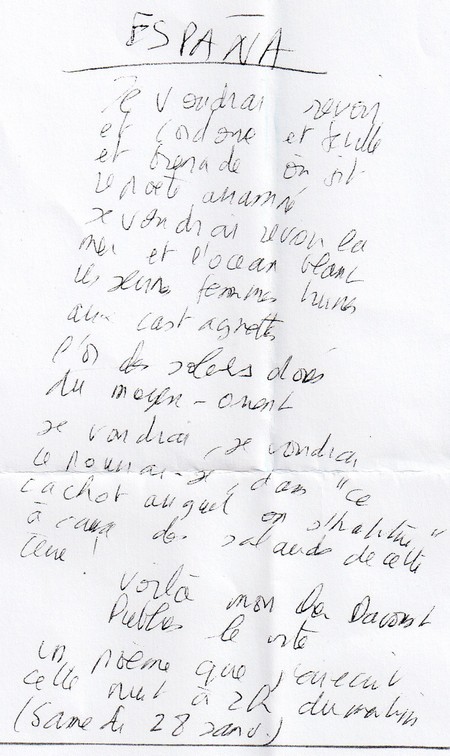 ESPAÑA
Je voudrai revoir
et Cordoue et Séville
et Grenade où gît
le poète assassiné
Je voudrai revoir la
mer et l'océan blanc
les jeunes femmes brunes
aux castagnettes
l'or des soleils dorés
du moyen-orient
Je voudrai, je voudrai
le pourrai-je, dans "ce
cachot auquel on s'habitue"
à cause des salauds de cette
Terre !
Voilà mon
Publies le vite
un poème que j'ai écrit
cette nuit à 2h du matin
(Samedi 28 janv.)